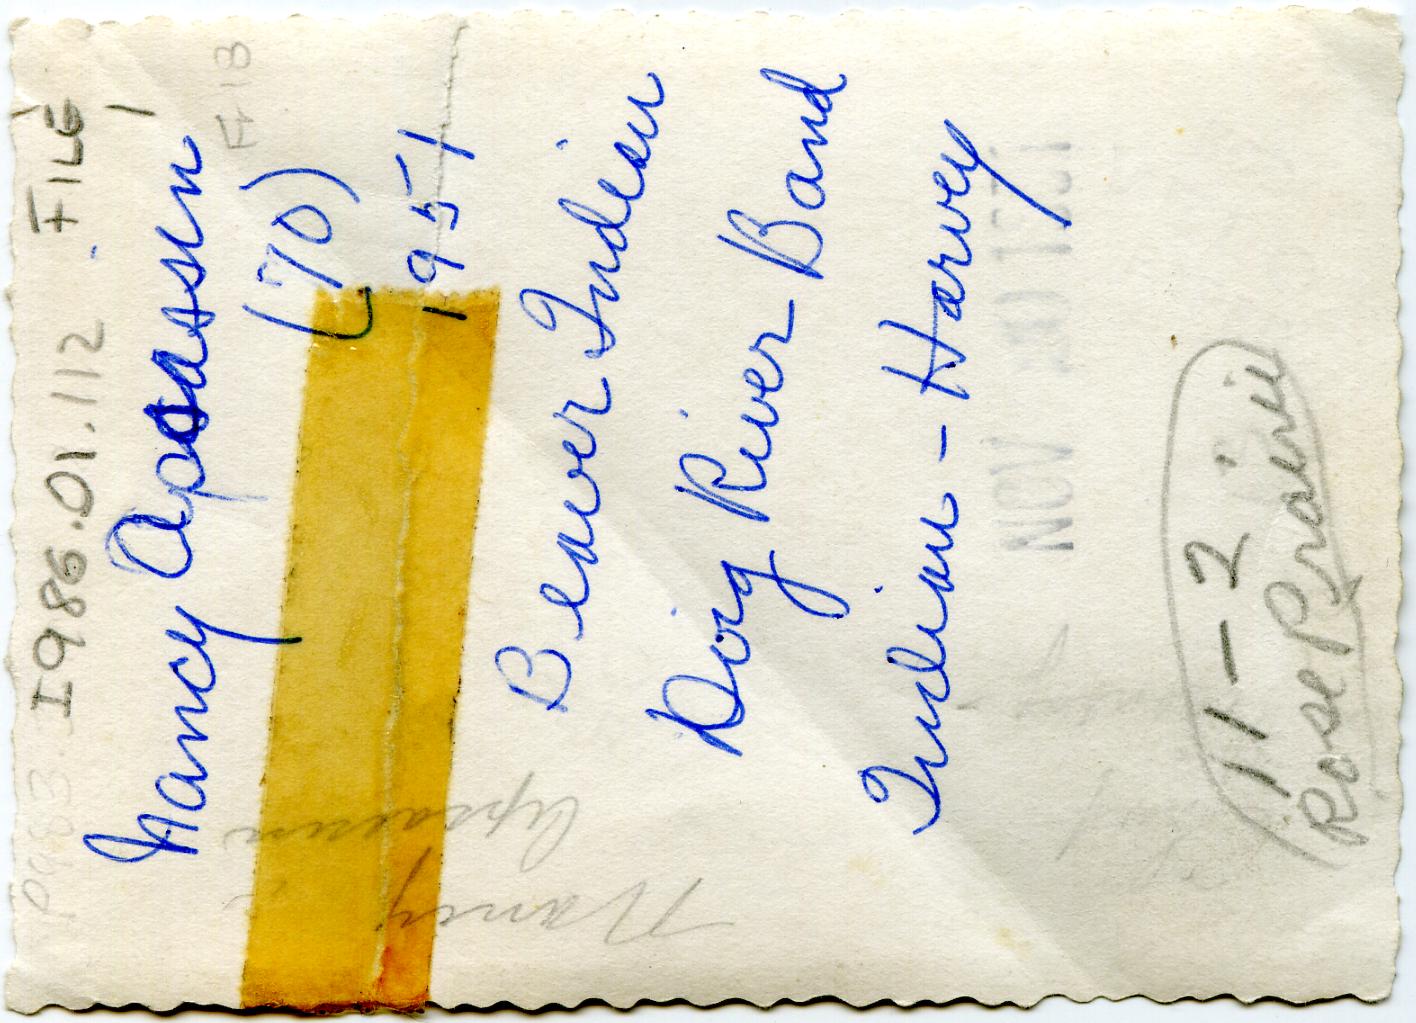 I986.01.112 FILE 1
Nancy Apsassin
(70)
1951
Beaver Indian
Doig River Band
Indian - Harvey
NOV
11-2
Rose Prairie
Nancy
Apsassin